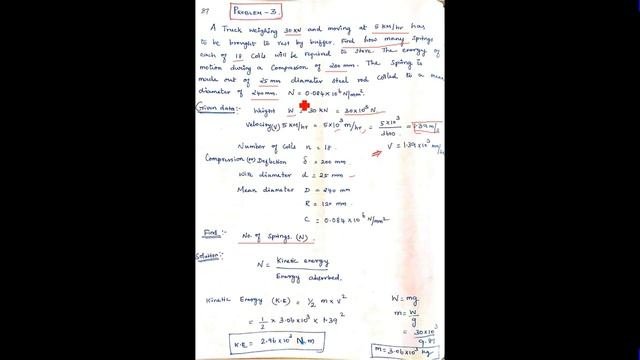 87 PROBLEM-3
A Truck weighing 30 KN and moving at 5 KM/hr has
to be brought to rest by buffer. Find how many springs
each of 18 Coils will be required to store. The energy of
motion during a Compression of 200 mm. The Spring is
made out of 25 mm diameter steel rod coiled to a mean
diameter of 240 mm. N = 0.084×10⁶ N/mm².
Given data:-
Weight W = 30 KN = 30×10³ N
Velocity (V) 5 KM/hr = 5×10³ m/hr, = 5×10³/3600 = 1.39 m/s
⇒ V = 1.39×10³ mm/
Number of Coils n = 18
Compression (or) Deflection δ = 200 mm
Wire diameter d = 25 mm
Mean diameter D = 240 mm
R = 120 mm
C = 0.084×10⁶ N/mm²
Find:-
No. of Springs (N)
Solution:-
N = Kinetic energy / Energy absorbed.
Kinetic Energy (K.E) = 1/2 m×v²
= 1/2 × 3.06×10³ × 1.39²
K.E = 2.96×10³ N m
W = mg
m = W/g
= 30×10³/9.81
m = 3.06×10³ kg